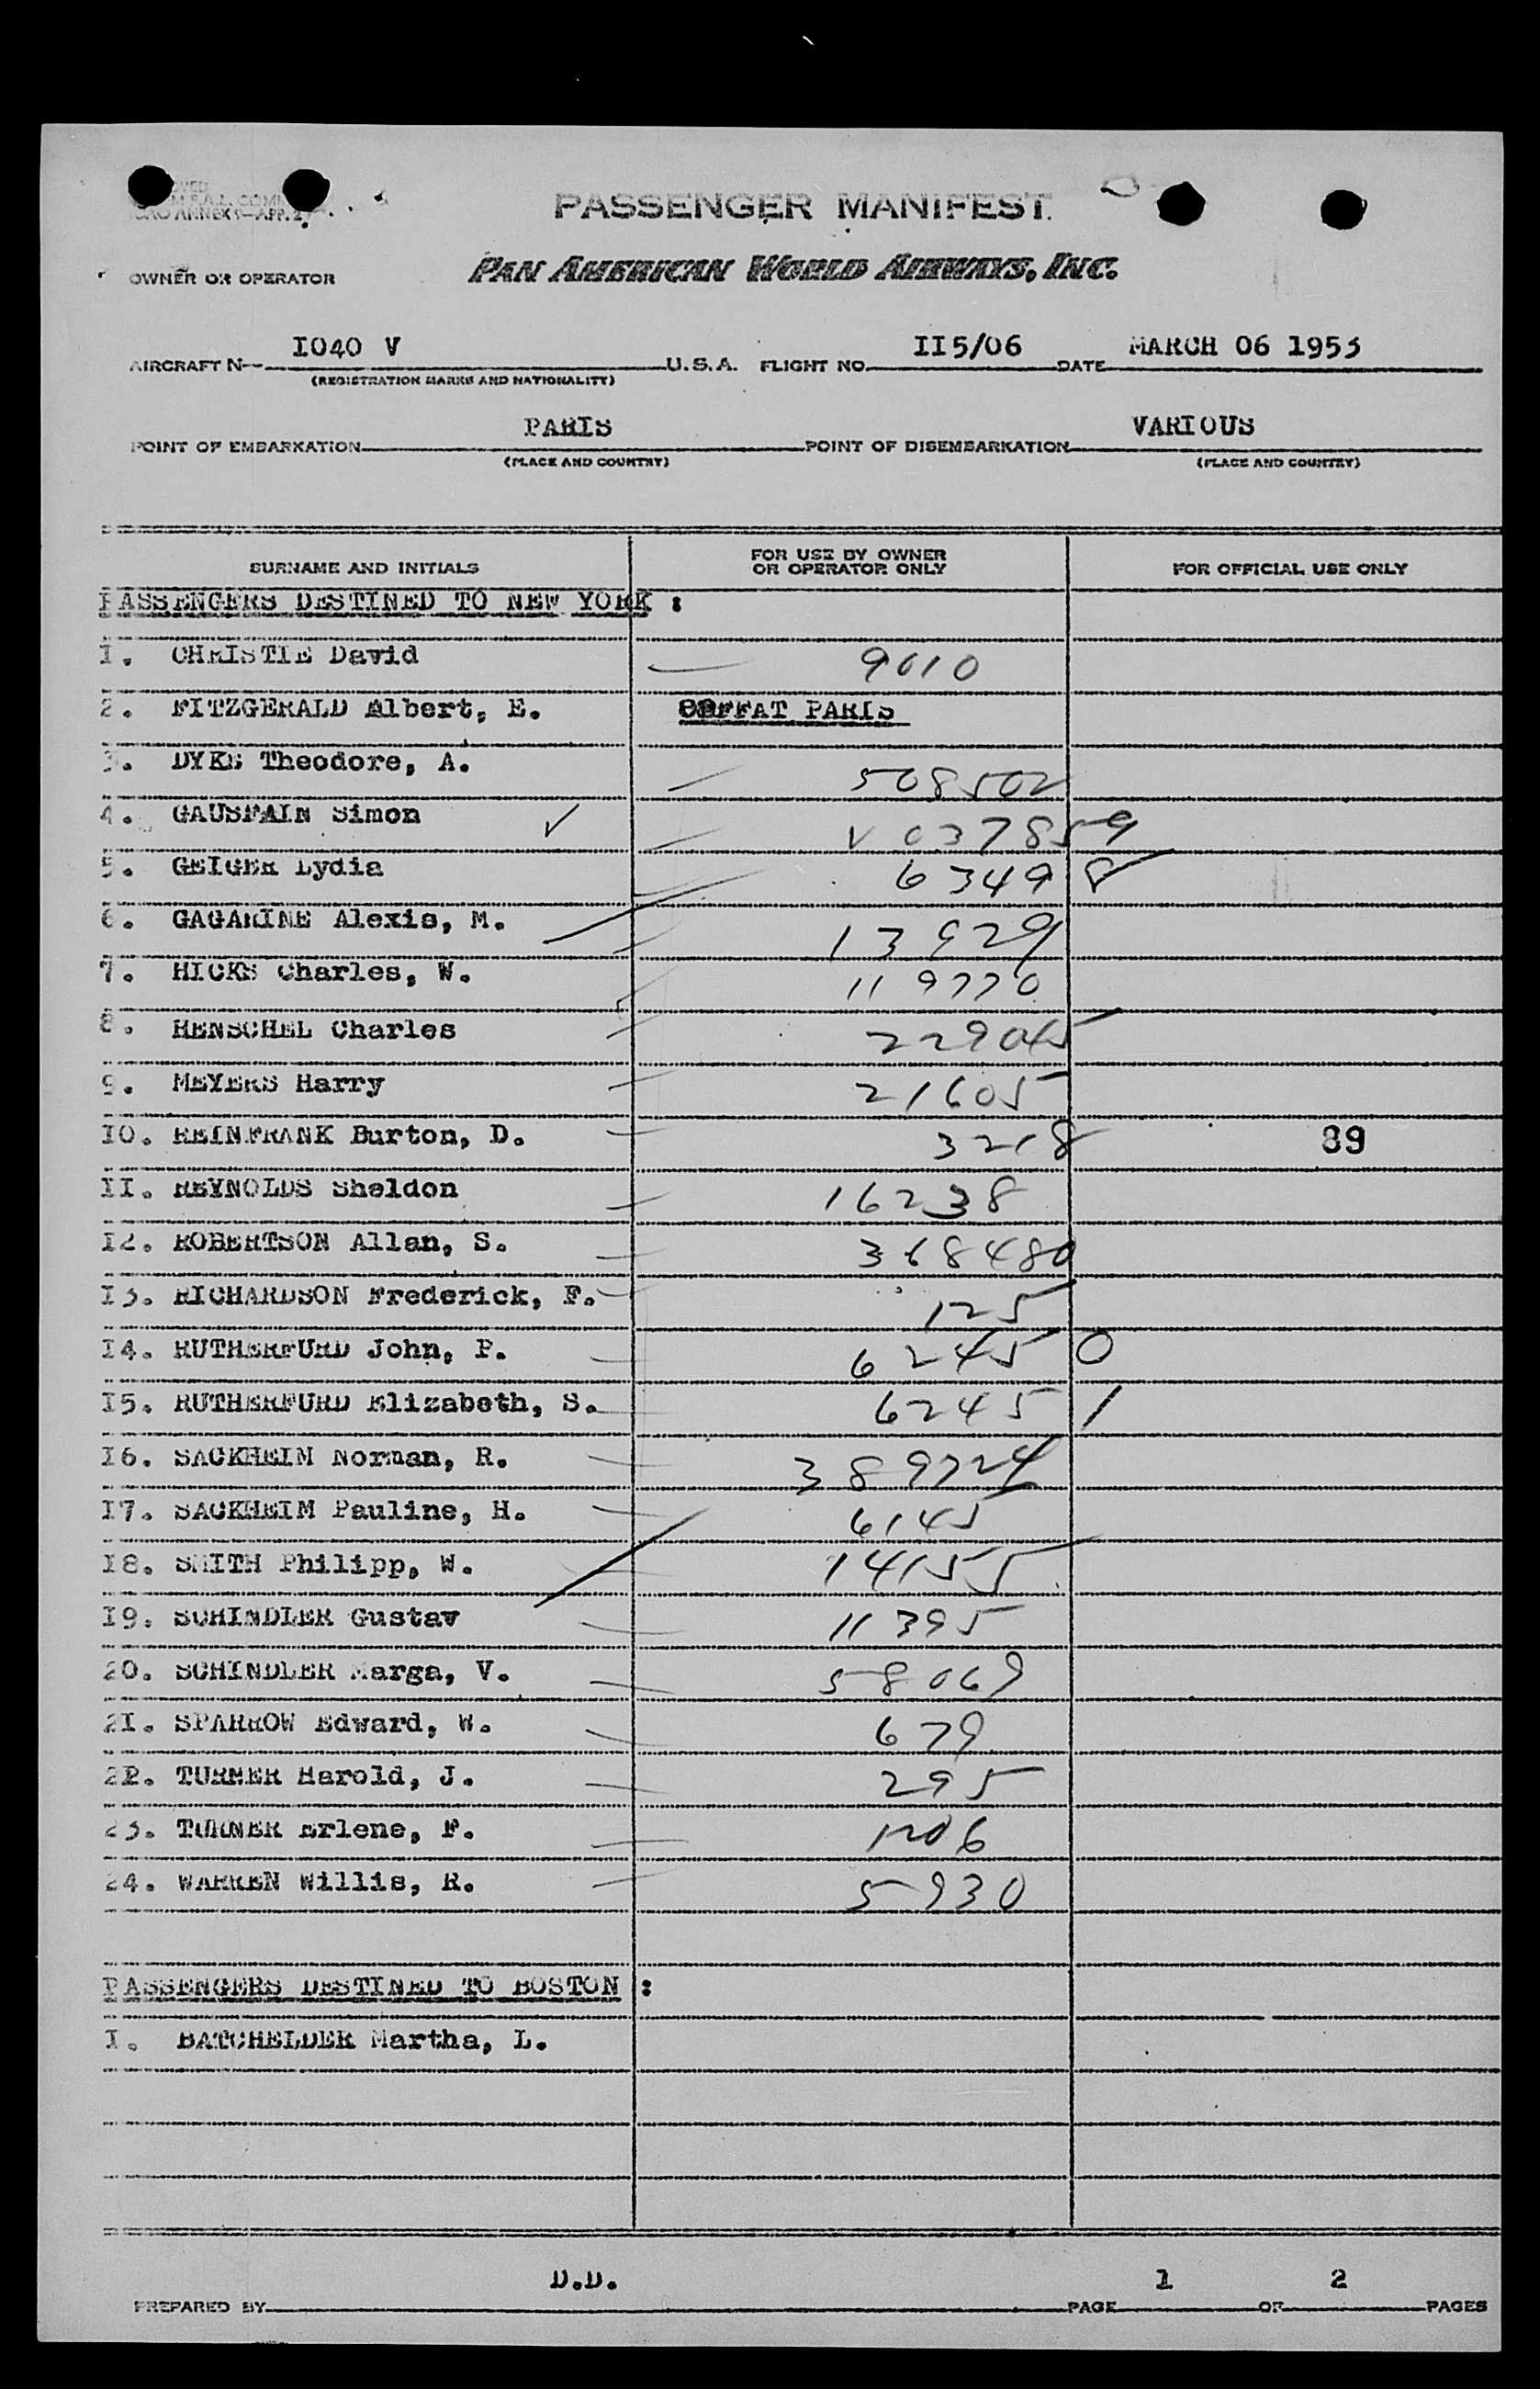 PASSENGER MANIFEST
CAO ANNEX 9—APP. 2
OWNER OR OPERATOR PAN AMERICAN WORLD AIRWAYS, INC.
AIRCRAFT N— I040 V U.S.A. FLIGHT NO. II5/06 DATE MARCH 06 1953
(REGISTRATION MARKS AND NATIONALITY)
POINT OF EMBARKATION PARIS POINT OF DISEMBARKATION VARIOUS
(PLACE AND COUNTRY) (PLACE AND COUNTRY)
SURNAME AND INITIALS FOR USE BY OWNER OR OPERATOR ONLY FOR OFFICIAL USE ONLY
PASSENGERS DESTINED TO NEW YORK :
I. CHRISTIE David — 9010
2. FITZGERALD Albert, E. PARIS
3. DYKE Theodore, A. — 508502
4. GAUSFAIN Simon ✓ — V 037859
5. GEIGER Lydia — 63498
6. GAGARINE Alexis, M. — 13929
7. HICKS Charles, W. 119770
8. HENSCHEL Charles — 229045
9. MEYERS Harry — 21605
IO. REINFRANK Burton, D. — 3218 89
II. REYNOLDS Sheldon — 16238
I2. ROBERTSON Allan, S. — 368480
I3. RICHARDSON Frederick, F. — 125
I4. RUTHERFURD John, P. — 62450
I5. RUTHERFURD Elizabeth, S. — 62451
I6. SACKHEIM Norman, R. — 389724
I7. SACKHEIM Pauline, H. — 6145
I8. SMITH Philipp, W. — 14155
I9. SCHINDLER Gustav — 11395
20. SCHINDLER Marga, V. — 58069
2I. SPARROW Edward, W. — 679
22. TURNER Harold, J. — 295
23. TURNER Erlene, F. — 1206
24. WARREN Willis, R. — 5930
PASSENGERS DESTINED TO BOSTON :
I. BATCHELDER Martha, L.
PREPARED BY D.D. PAGE 1 OF 2 PAGES